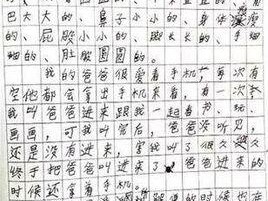 巴大大的、鼻子小小的、身体瘦瘦
的、屁股小小的、脚长长的、手细
细的、肚股圆圆的。
我的爸爸很爱看手机，每次有
空他都会拿出手机来看。有一次
我叫爸爸进来跟我一起看书、玩
画画，可我叫完后，爸爸没听见，
还是没有进来，害我叫了很久，
终于把爸爸叫进来了，爸爸进来的
时候还拿着手机。
的时候也在